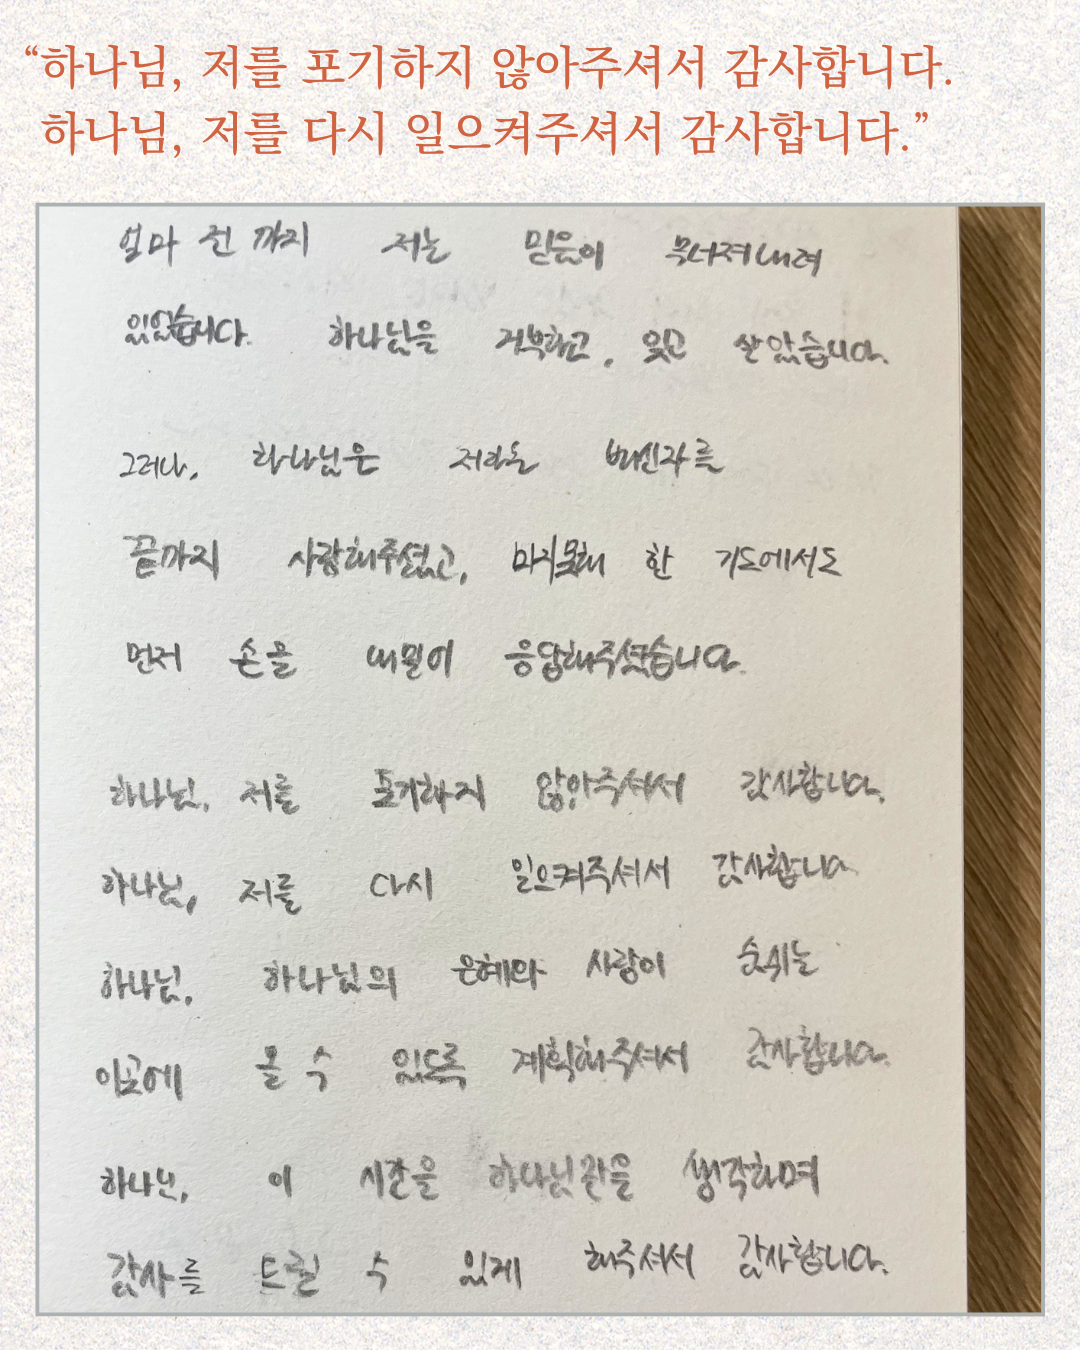 “하나님, 저를 포기하지 않아주셔서 감사합니다.
하나님, 저를 다시 일으켜주셔서 감사합니다.”
얼마 전까지 저는 믿음이 무너져내려
있었습니다. 하나님을 거부하고, 잊고 살았습니다.
그러나, 하나님은 저라는 배신자를
끝까지 사랑해주셨고, 마지못해 한 기도에서도
먼저 손을 내밀어 응답해주셨습니다.
하나님, 저를 포기하지 않아주셔서 감사합니다.
하나님, 저를 다시 일으켜주셔서 감사합니다
하나님, 하나님의 은혜와 사랑이 숨쉬는
이곳에 올 수 있도록 계획해주셔서 감사합니다.
하나님, 이 시간을 하나님만을 생각하며
감사를 드릴 수 있게 해주셔서 감사합니다.